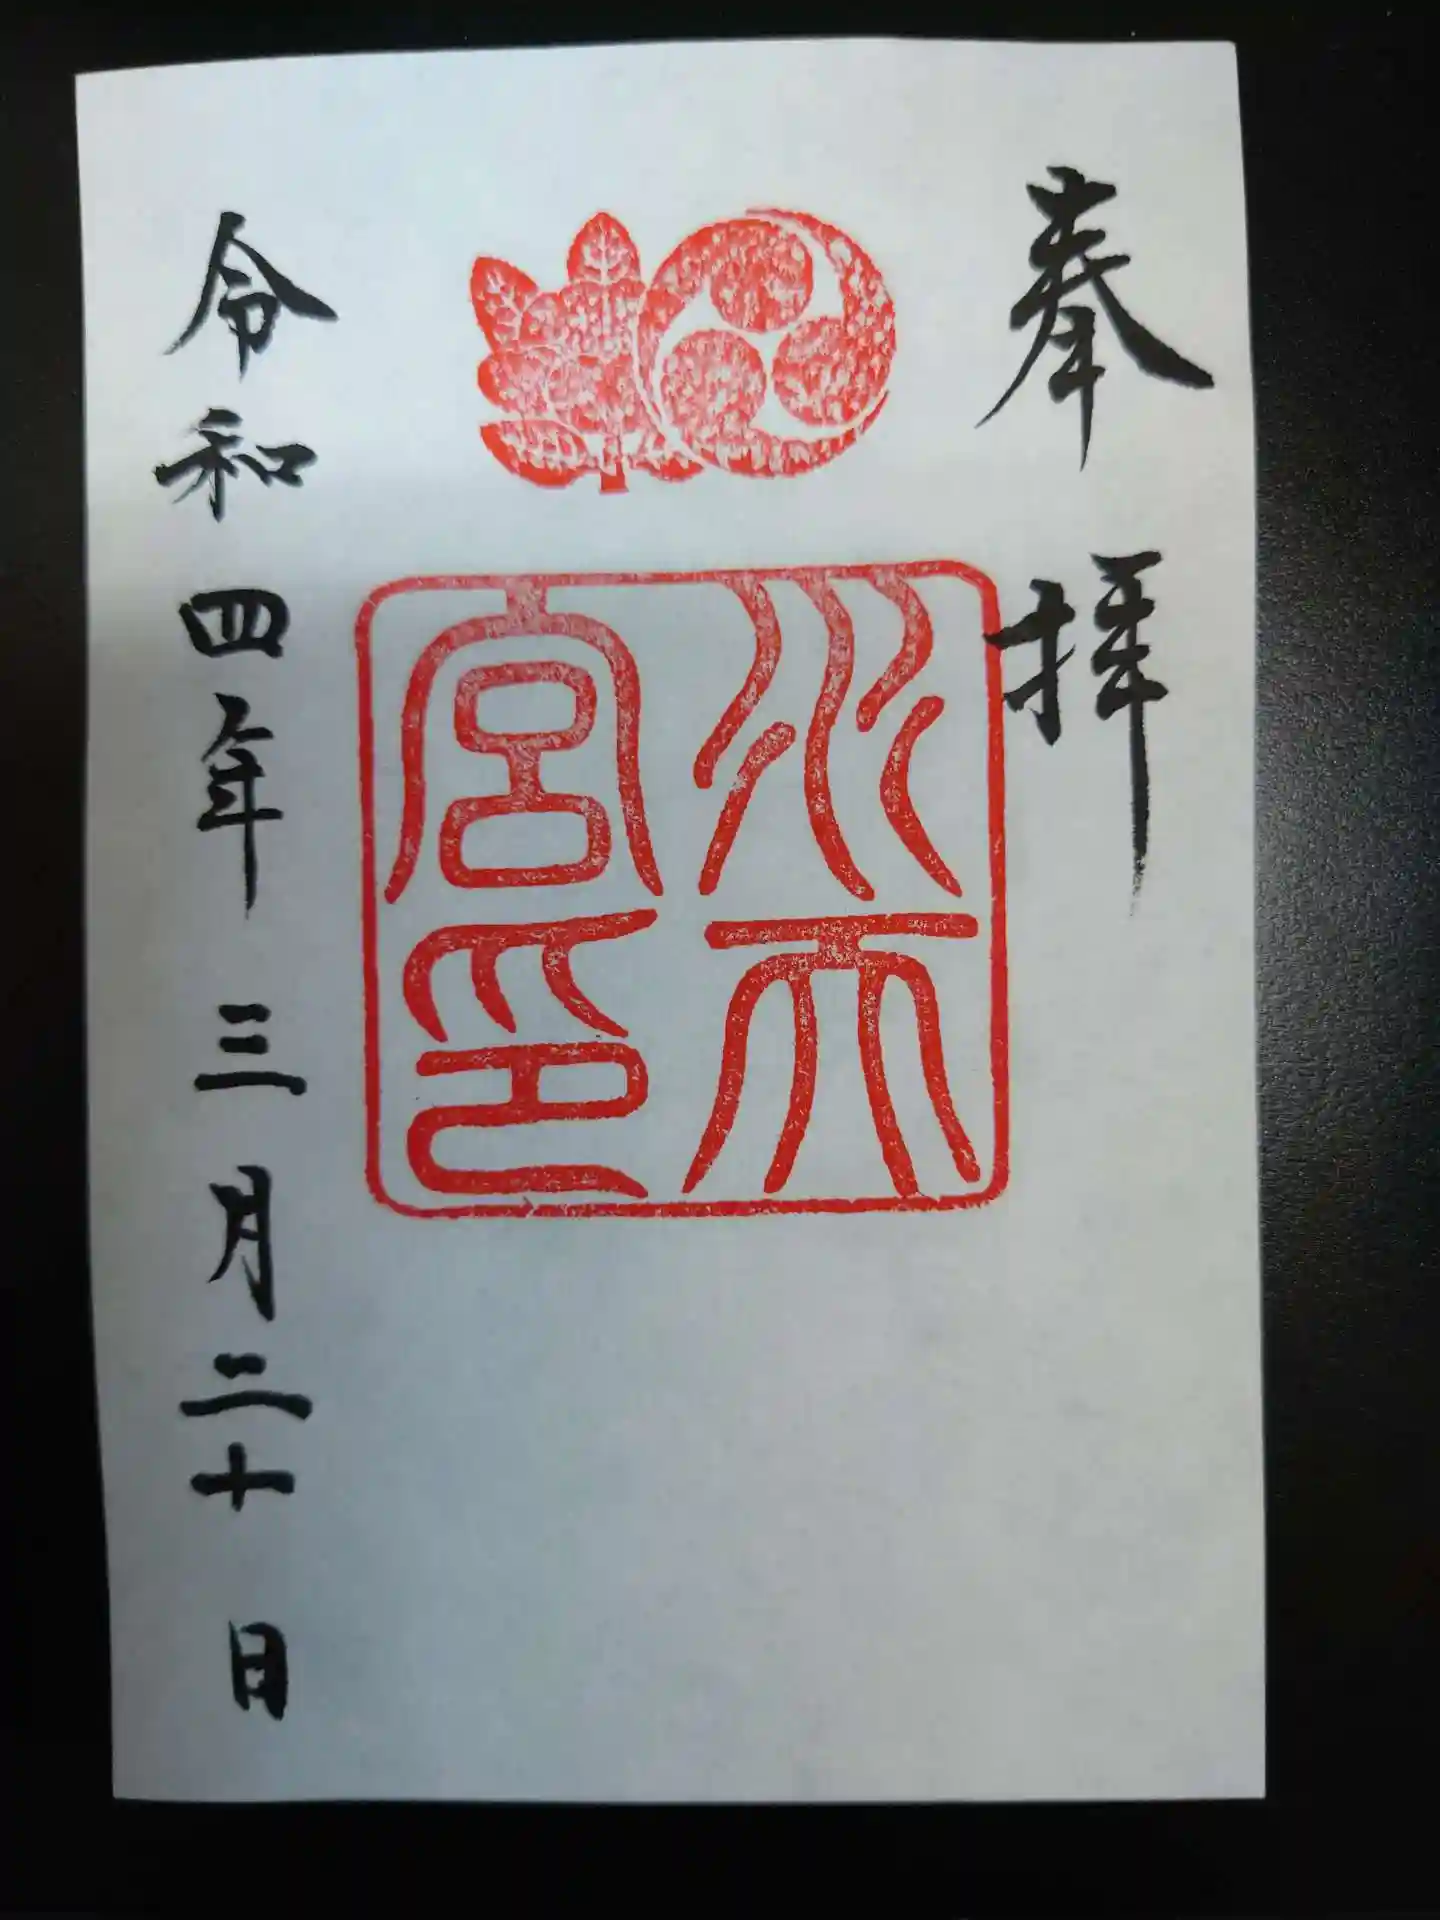 奉拝
水天
宮印
令和四年三月二十日